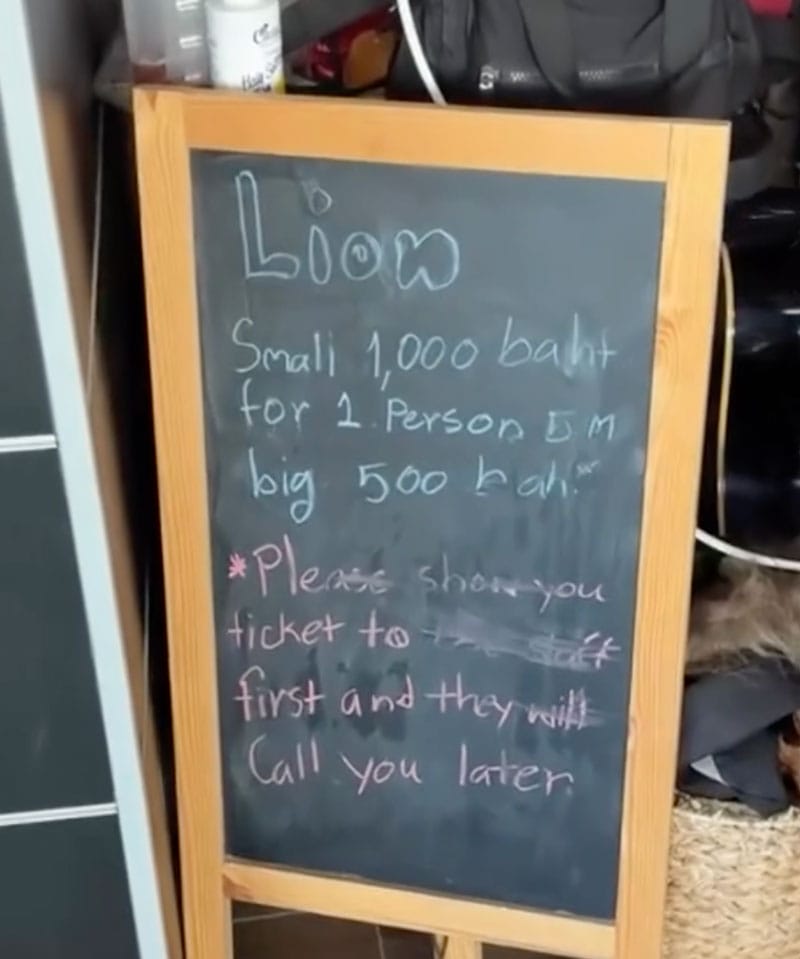 Lion
Small 1,000 baht
for 1 Person 5 m
big 500 bah
*Please show you
ticket to
first and they will
Call you later